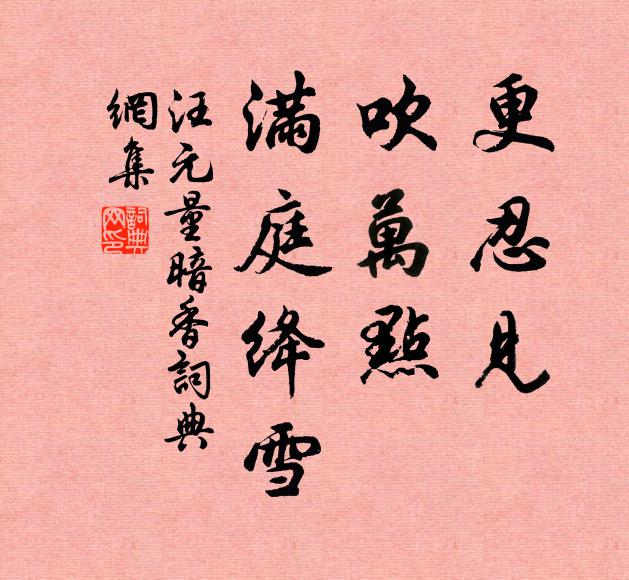 更忍見
吹萬點
滿庭絳雪
汪元量暗香詞典
網集
詞典
網印